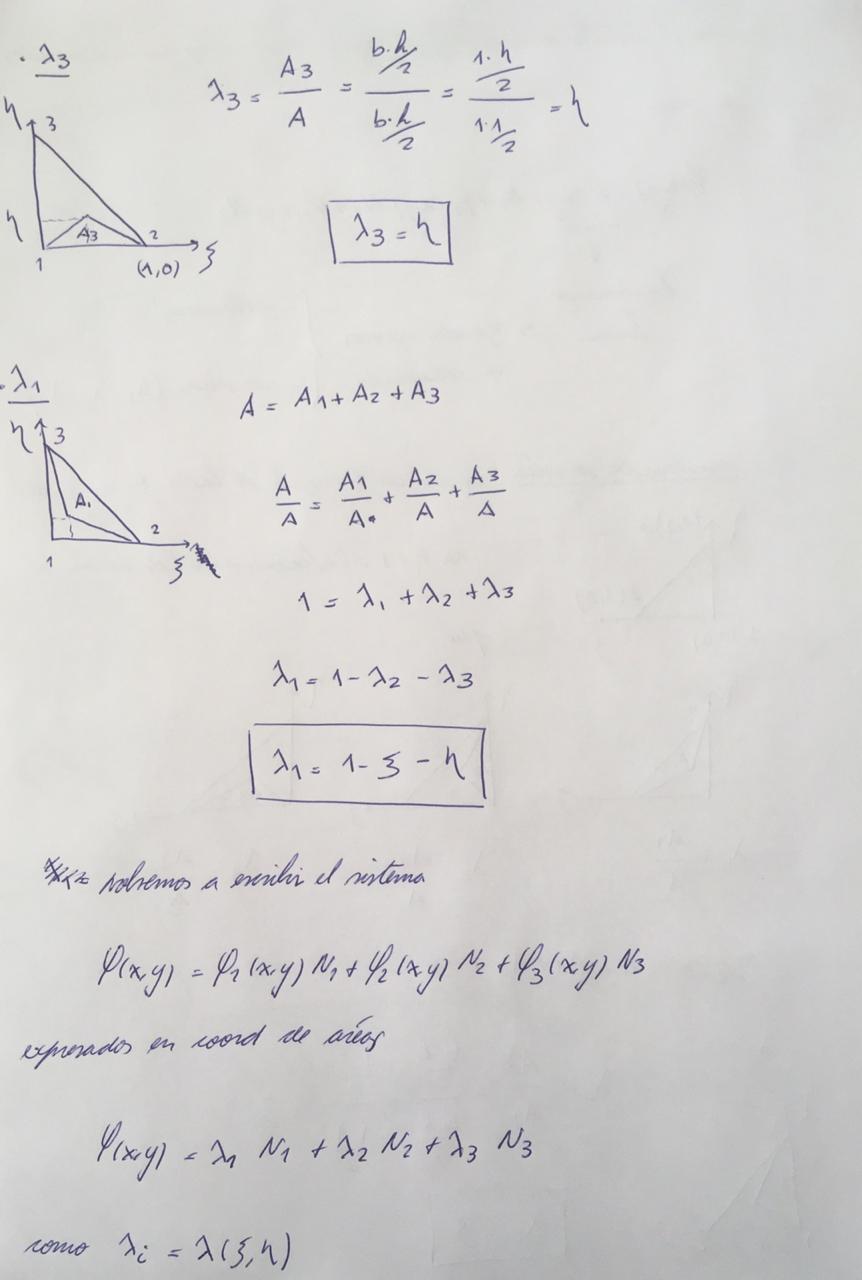 · λ3
λ3 = A3/A = (b·h/2)/(b·h/2) = (1·η/2)/(1·1/2) = η
η
3
η
A3
2
1
(1,0)
ξ
λ3 = η
· λ1
A = A1 + A2 + A3
η
3
A1
2
1
ξ
A/A = A1/A + A2/A + A3/A
1 = λ1 + λ2 + λ3
λ1 = 1 - λ2 - λ3
λ1 = 1 - ξ - η
volvemos a escribir el sistema
φ(x,y) = φ1(x,y) N1 + φ2(x,y) N2 + φ3(x,y) N3
expresados en coord de áreas
φ(x,y) = λ1 N1 + λ2 N2 + λ3 N3
como λi = λ(ξ,η)